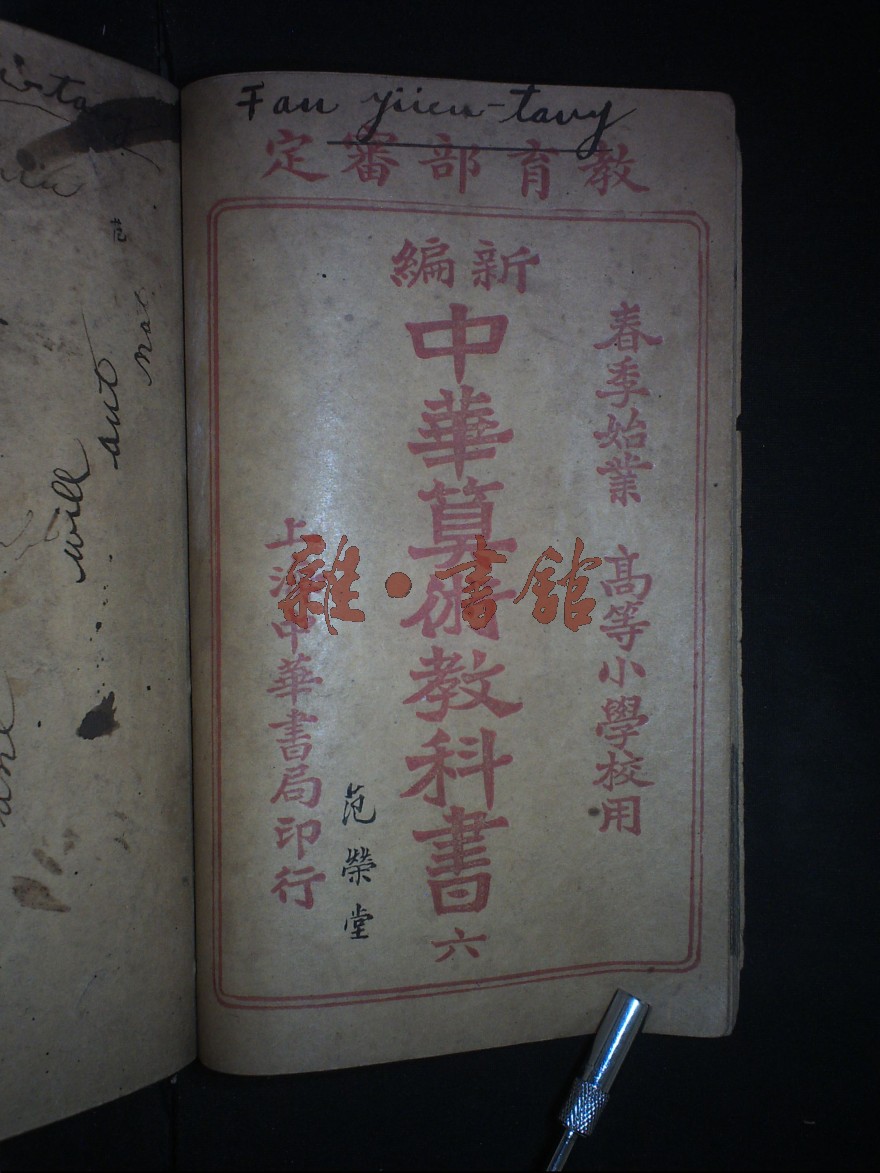 Fan yüen-tang
教育部審定
春季始業 高等小學校用
新編
中華算術教科書六
上海中華書局印行
范榮堂
雜·書館
范
will